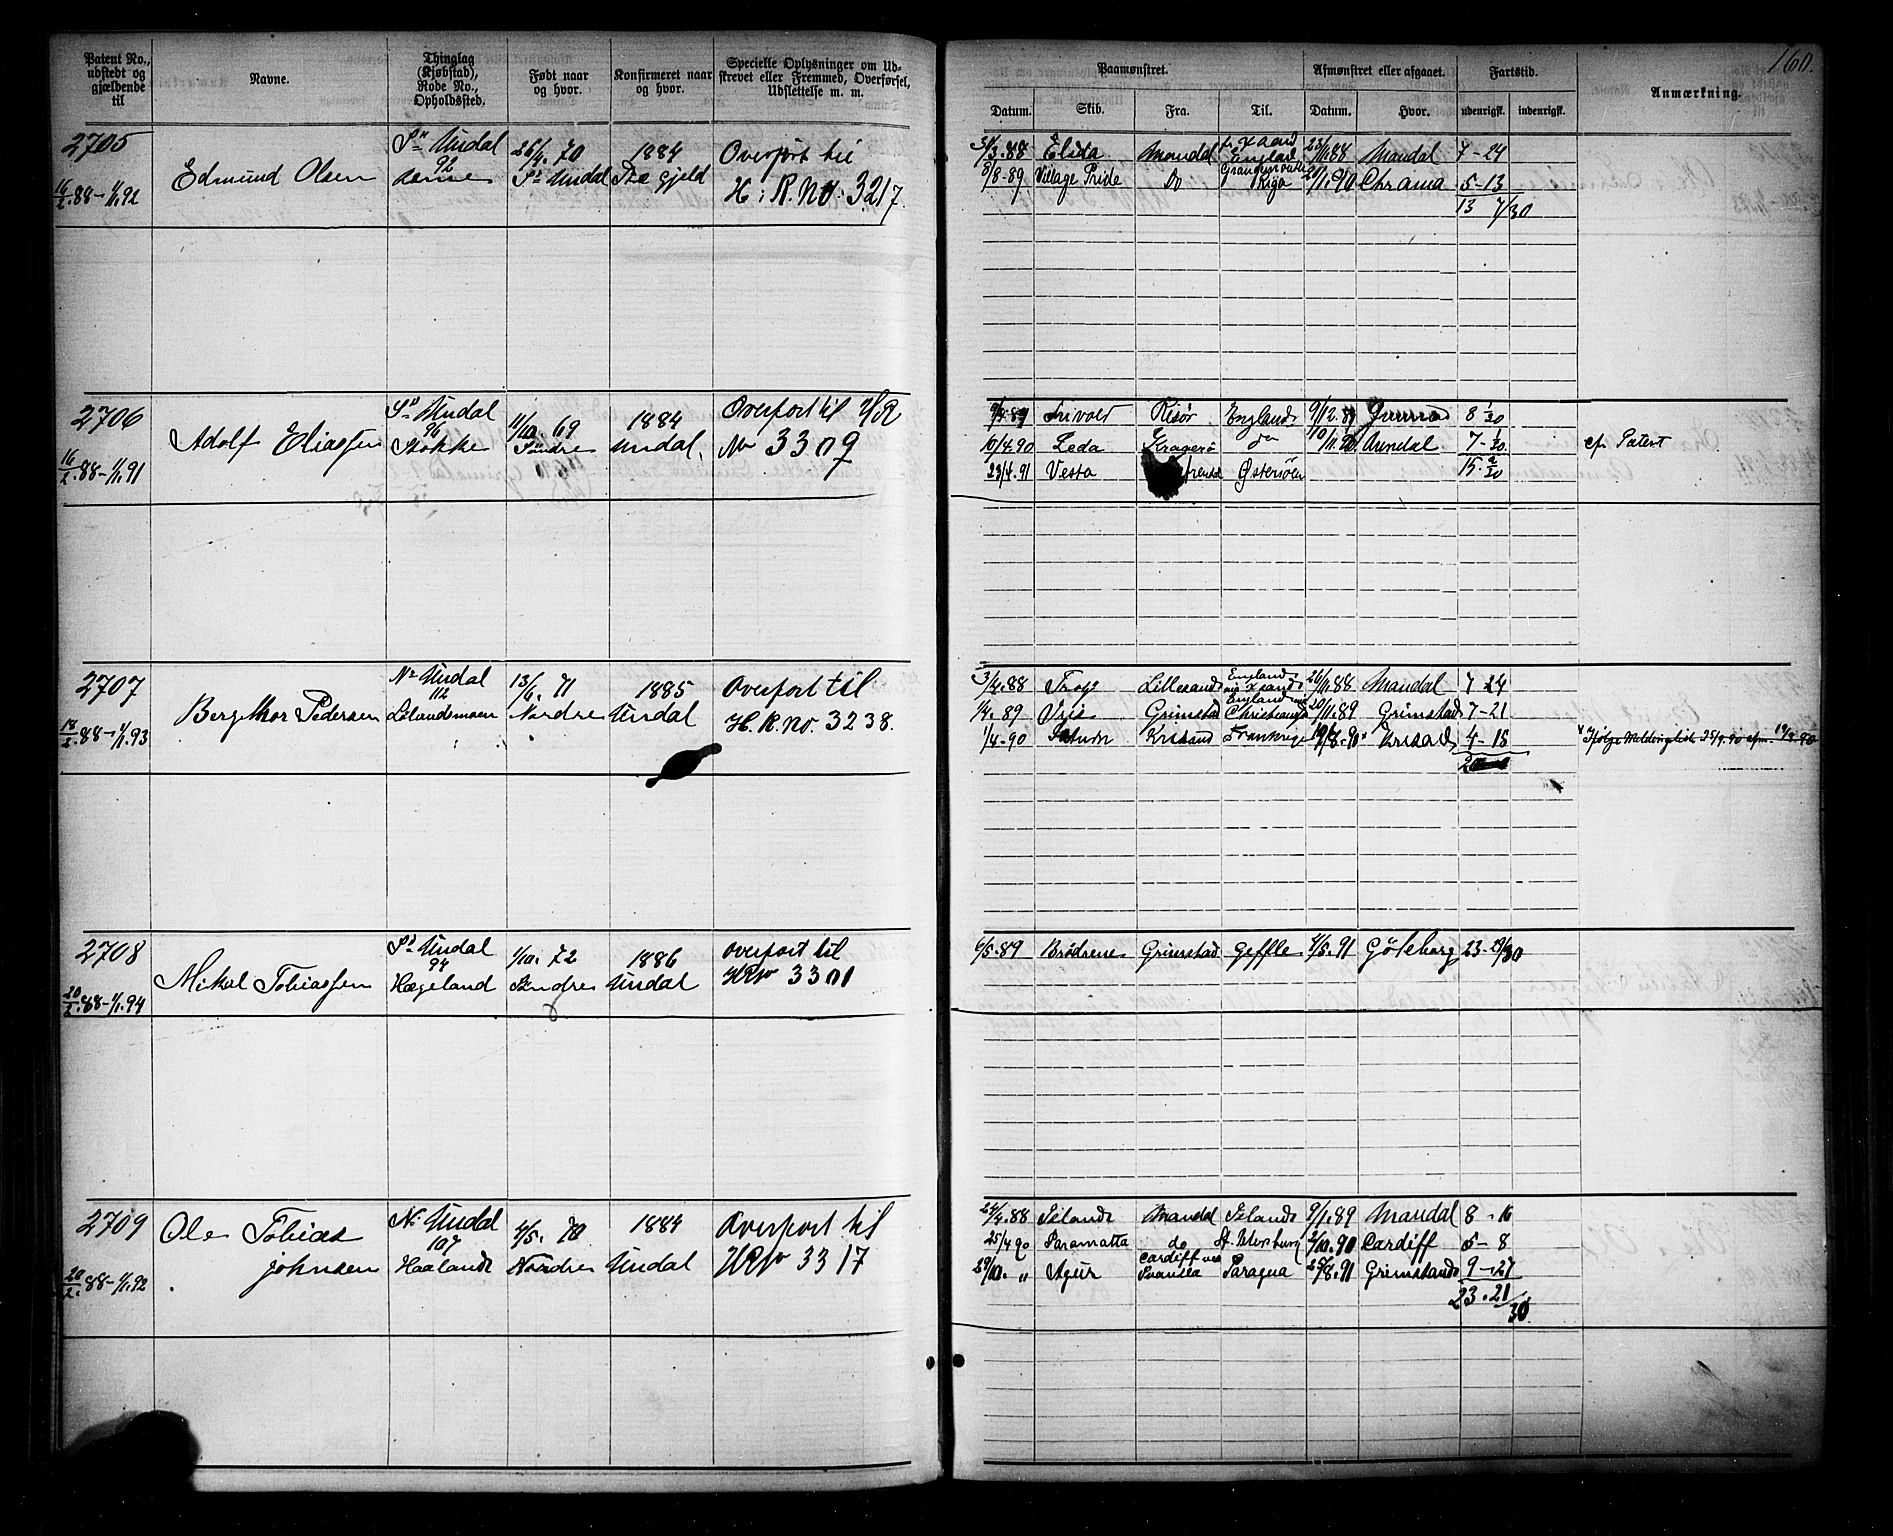 160.
Patent No., udstedt og gjældende til
Navne.
Thinglag (Kjøbstad), Rode No., Opholdssted.
Født naar og hvor.
Konfirmeret naar og hvor.
Specielle Oplysninger om Udskrevet eller Fremmed, Overførsel, Udslettelse m. m.
Paamønstret.
Afmønstret eller afgaaet.
Fartstid.
Anmærkning.
Datum. Skib. Fra. Til. Datum. Hvor. udenrigsk. indenrigsk.
2705
16/2.88-1/1.92
Edmund Olsen
Sr Undal
92
26/4. 70
Sr Undal
1884
gjeld
Overført til
H: R. No: 3217.
3/3.88 Elida Mandal England 23/11.88 Mandal 7-24
8/8-89 Village Pride Do Riga 90 Chrania 5-13
13 7/30
2706
16/2.88-1/1.91
Adolf Eliassen
Sr Undal
96
Stokke
11/10. 69
Søndre
1884
Undal.
Overført til H/R
No 3309
9/4.89 Frivold Risør England 9/12.89 8 1/30
10/4.90 Leda Kragerø Do 10/11.90 Arendal 7-1/30 Patent
23/4.91 Vesta Østersøen 15. 2/30
2707
18/2.88-1/1.93
Bergethor Pedersen
Nr Undal
112
Lølandsmoen
13/6. 71
Nordre
1885
Undal
Overført til
H. R. No. 3238.
3/4.88 Lillesand England 26/11.88 Mandal 7 24
1/4.89 Iris Grimstad England Christiania 20/11.89 Grimstad 7-21
1/4-90 Saturn Krsand Frankrige 19/8.90 Krsand 4-15 Ifølge Meldingsliste 25/9.90 19/8.90
2708
20/2.88-1/1.94
Mikal Tobiassen
Sr Undal
94
Hægeland
1/10. 72
Søndre
1886
Undal
Overført til
HRN 3301
6/5.89 Brødrene Grimstad Geffle 4/5.91 Göteborg 23-29/30
2709
20/2.88-1/1.92
Ole Tobias
Johnsen
Nr Undal
107
Haaland
4/5. 70
Nordre
1884
Undal
Overført til
HRN 3317
24/4.88 Island Mandal Island 9/1.89 Mandal 8-16
25/4 90 Paramatta do St. Petersburg 3/10.90 Cardiff 5-8
29/10. " Cardiff Swansea Paragua 25/8.91 Grimstad 9-27
23.21/30